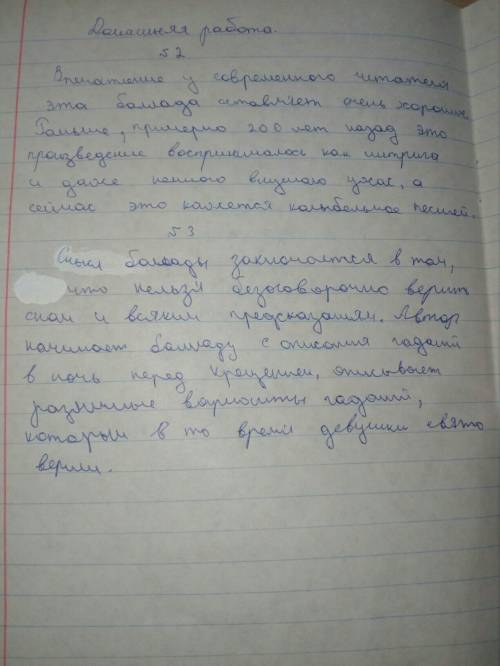 Домашняя работа.
№2
Впечатление у современного читателя
эта баллада оставляет очень хорошие.
Раньше, примерно 200 лет назад это
произведение воспринималось как интрига
и даже немного внушало ужас, а
сейчас это кажется колыбельное песней.
№3
Смысл баллады заключается в том,
что нельзя безоговорочно верить
снам и всяким предсказаниям. Автор
начинает балладу с описания гаданий
в ночь перед Крещением, описывает
различные варианты гаданий,
которым в то время девушки свято
верили.